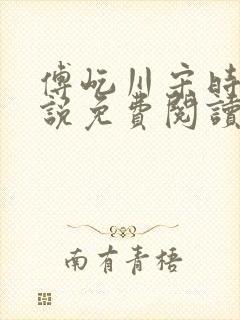 傅屹川宋時
說免費閱讀
南有青梧